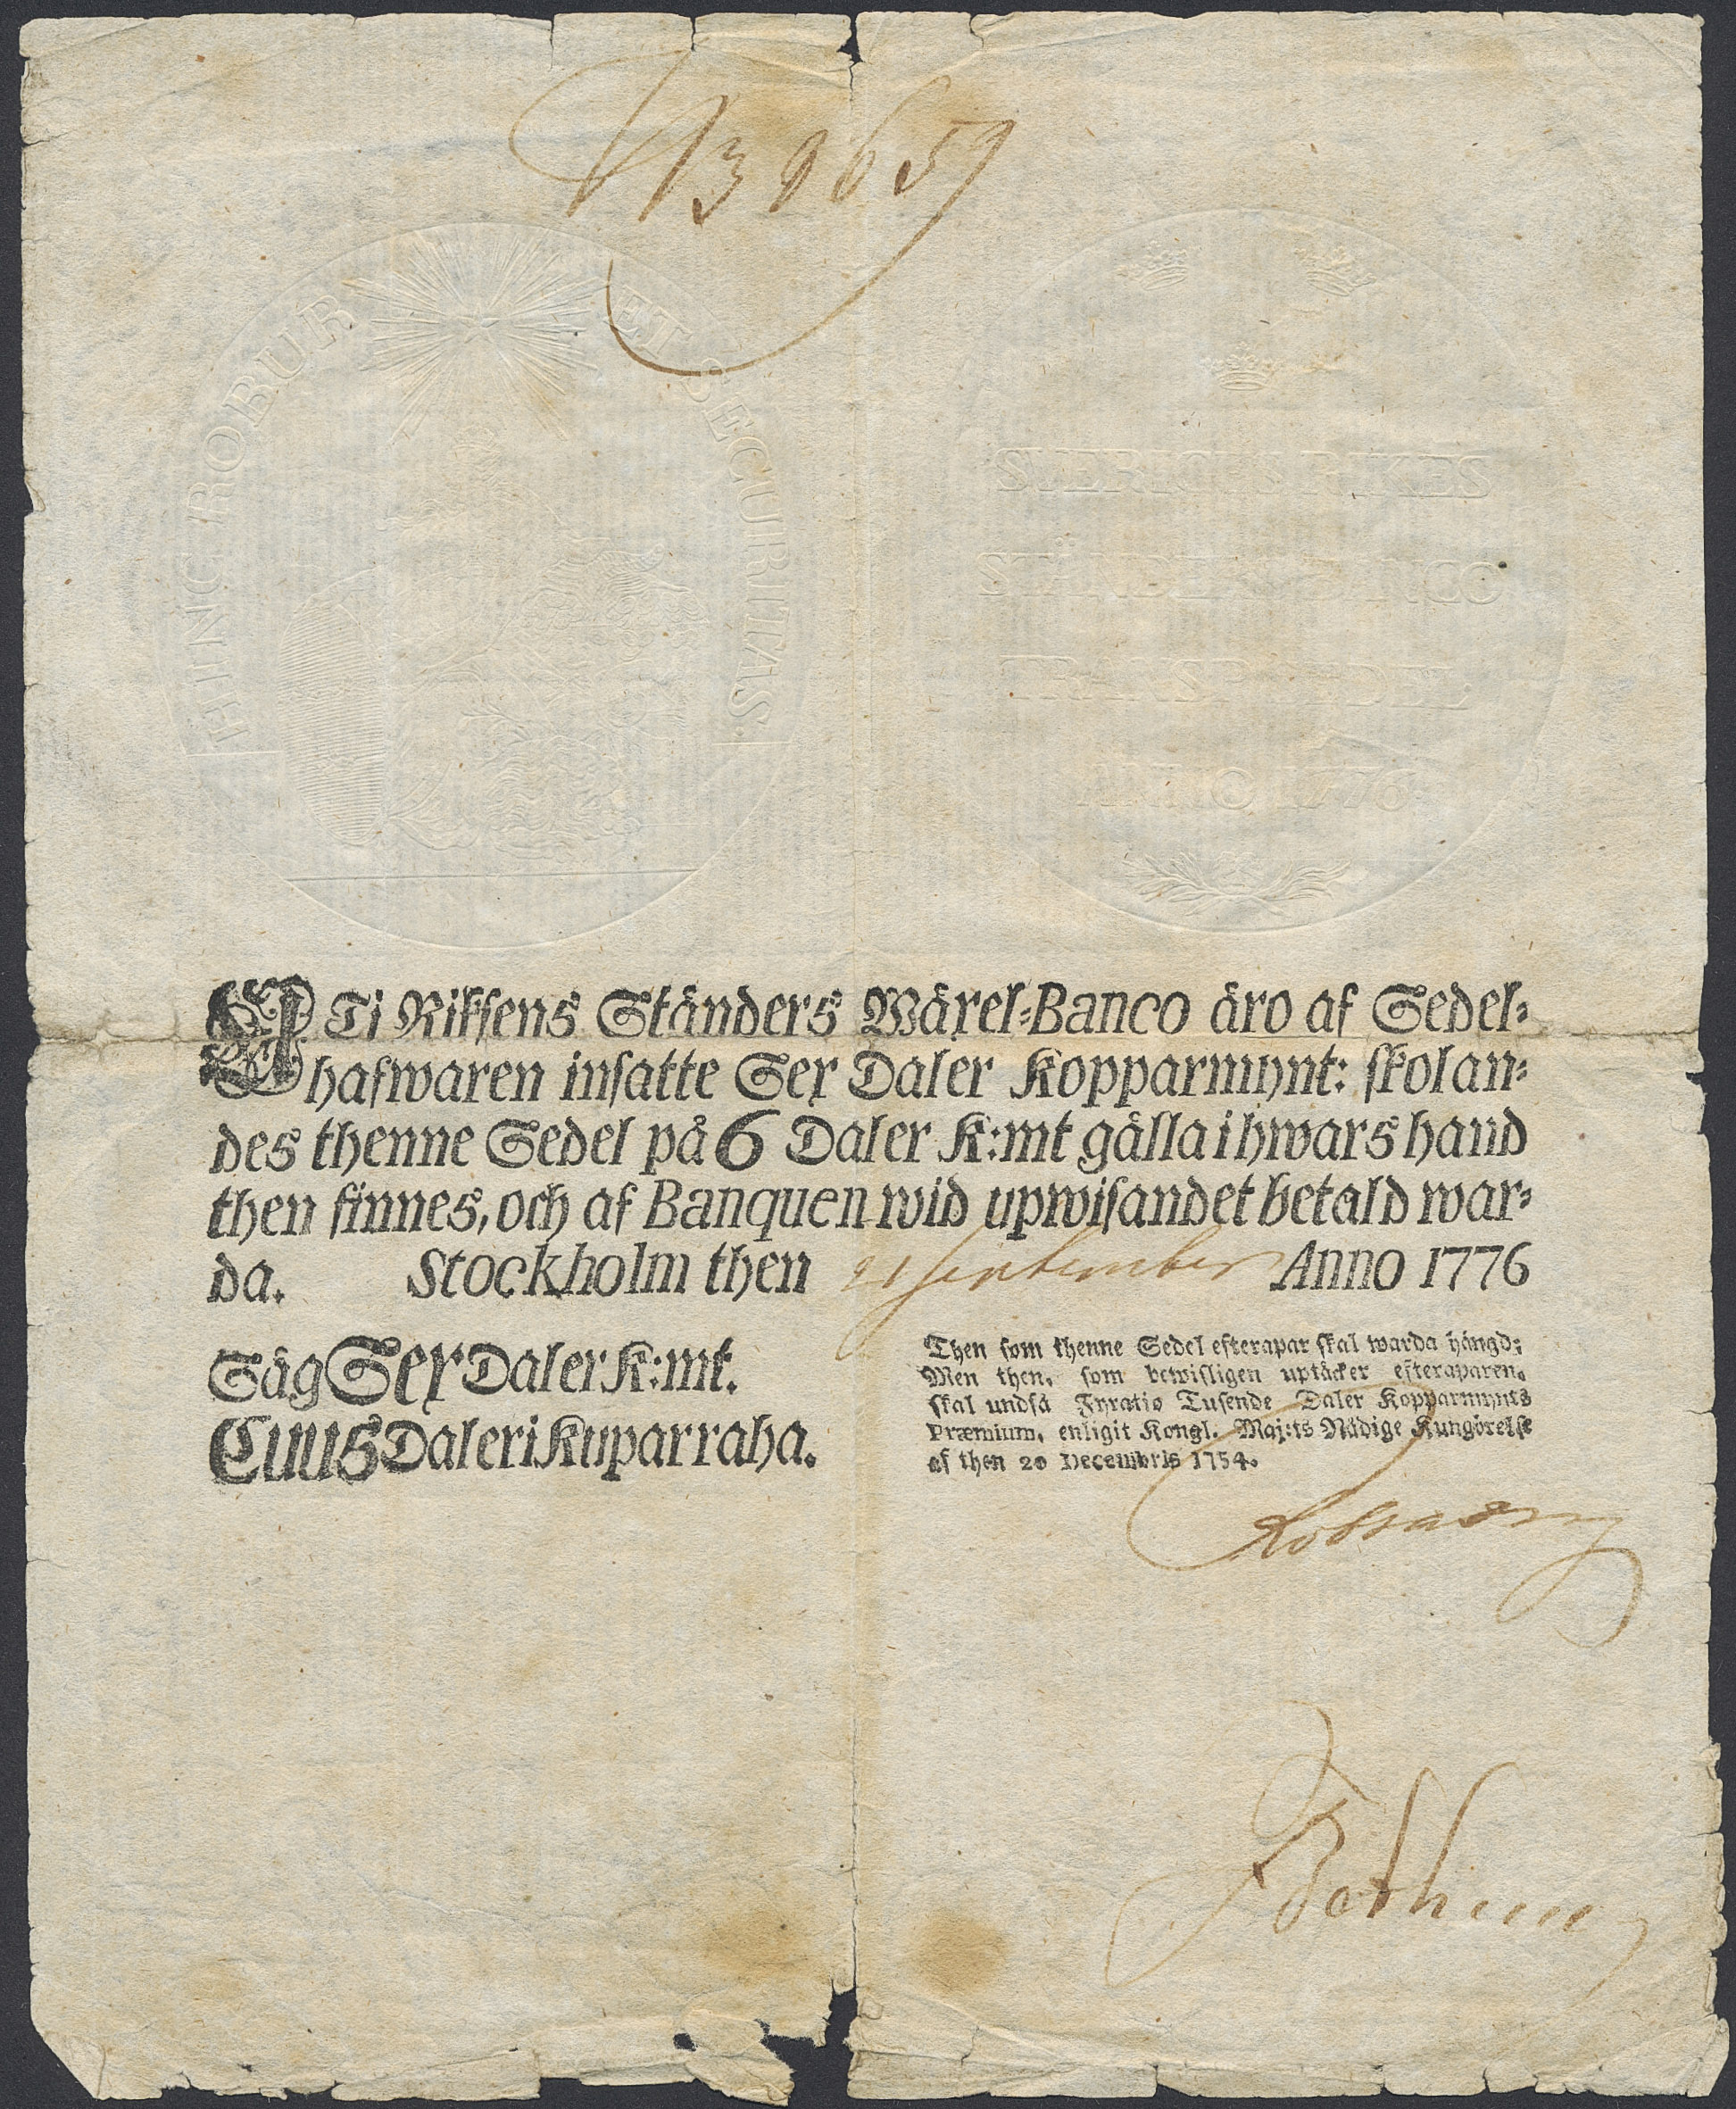 N 39659
HINC ROBUR ET SECURITAS.
SVERIGES RIKES
STÄNDERS BANCO
TRANSPORTSEDEL.
ANNO 1776
UTi Riksens Ständers Wäxel-Banco äro af Sedel-
hafwaren insatte Sex Daler Kopparmynt: skolan-
des thenne Sedel på 6 Daler K:mt gälla i hwars hand
then finnes, och af Banquen wid upwisandet betald war-
da. Stockholm then 21 September Anno 1776
Säg Sex Daler K:mt.
Cuus Daleri Kuparraha.
Then som thenne Sedel efterapar skal warda hängd;
Men then, som bewisligen uptäcker efteraparen,
skal undfå Fyratio Tusende Daler Kopparmynts
Præmium, enligit Kongl. Maj:ts Nådige Kungörelse
af then 20 Decembris 1754.